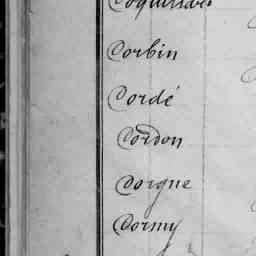 Corbin
Cordé
Cordon
Corgne
Cormy